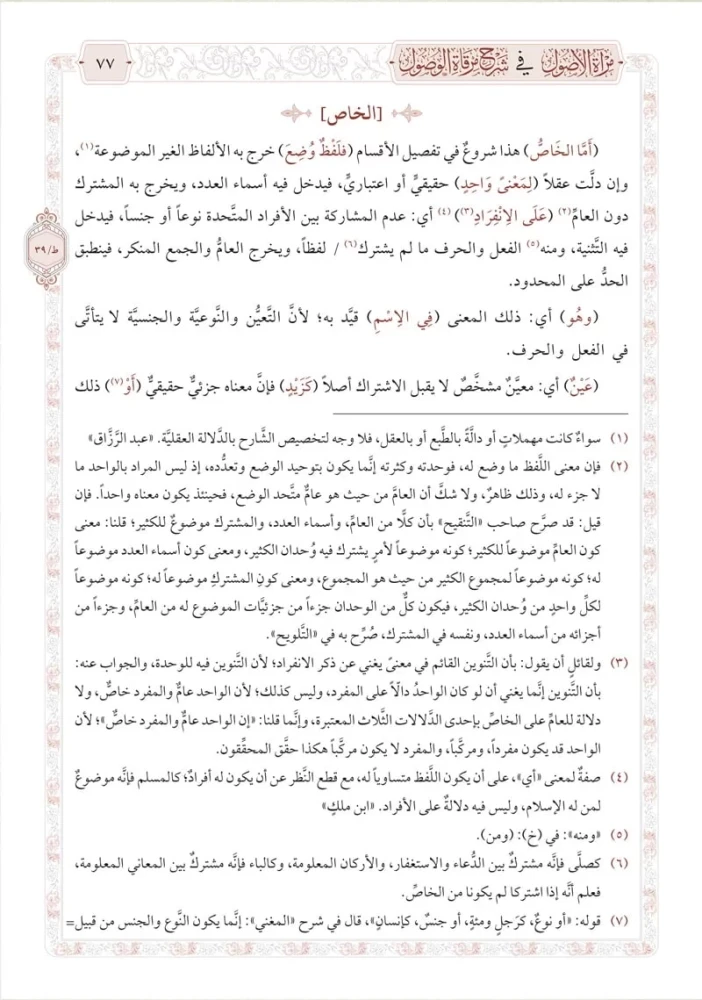 مرآة الأصول في شرح مرقاة الوصول
٧٧
[الخاص]
(أَمَّا الخَاصُّ) هذا شروعٌ في تفصيل الأقسام (فلَفْظٌ وُضِعَ) خرج به الألفاظ الغير الموضوعة(١)،
وإن دلَّت عقلاً (لِمَعْنىً وَاحِدٍ) حقيقيٍّ أو اعتباريٍّ، فيدخل فيه أسماء العدد، ويخرج به المشترك
دون العامِّ(٢) (عَلَى الِانْفِرَادِ(٣)) (٤) أي: عدم المشاركة بين الأفراد المتَّحدة نوعاً أو جنساً، فيدخل
فيه التَّثنية، ومنه(٥) الفعل والحرف ما لم يشترك(٦) / لفظاً، ويخرج العامُّ والجمع المنكر، فينطبق
الحدُّ على المحدود.
ظ/٣٩
(وهُو) أي: ذلك المعنى (فِي الِاسْمِ) قيَّد به؛ لأنَّ التَّعيُّن والنَّوعيَّة والجنسية لا يتأتَّى
في الفعل والحرف.
(عَيْنٌ) أي: معيَّنٌ مشخَّصٌ لا يقبل الاشتراك أصلاً (كَزَيْدٍ) فإنَّ معناه جزئيٌّ حقيقيٌّ (أَوْ(٧)) ذلك
(١) سواءٌ كانت مهملاتٍ أو دالَّةً بالطَّبع أو بالعقل، فلا وجه لتخصيص الشَّارح بالدَّلالة العقليَّة. «عبد الرَّزاق»
(٢) فإن معنى اللَّفظ ما وضع له، فوحدته وكثرته إنَّما يكون بتوحيد الوضع وتعدُّده، إذ ليس المراد بالواحد ما
لا جزء له، وذلك ظاهرٌ، ولا شكَّ أن العامَّ من حيث هو عامٌّ متَّحد الوضع، فحينئذ يكون معناه واحداً. فإن
قيل: قد صرَّح صاحب «التَّنقيح» بأن كلًّا من العامِّ، وأسماء العدد، والمشترك موضوعٌ للكثير؛ قلنا: معنى
كون العامِّ موضوعاً للكثير؛ كونه موضوعاً لأمرٍ يشترك فيه وُحدان الكثير، ومعنى كون أسماء العدد موضوعاً
له؛ كونه موضوعاً لمجموع الكثير من حيث هو المجموع، ومعنى كونِ المشتركِ موضوعاً له؛ كونه موضوعاً
لكلِّ واحدٍ من وُحدان الكثير، فيكون كلٌّ من الوحدان جزءاً من جزئيَّات الموضوع له من العامِّ، وجزءاً من
أجزائه من أسماء العدد، ونفسه في المشترك، صُرِّح به في «التَّلويح».
(٣) ولقائلٍ أن يقول: بأن التَّنوين القائم في معنىً يغني عن ذكر الانفراد؛ لأن التَّنوين فيه للوحدة، والجواب عنه:
بأن التَّنوين إنَّما يغني أن لو كان الواحدُ دالًّا على المفرد، وليس كذلك؛ لأن الواحد عامٌّ والمفرد خاصٌّ، ولا
دلالة للعامِّ على الخاصِّ بإحدى الدَّلالات الثَّلاث المعتبرة، وإنَّما قلنا: «إن الواحد عامٌّ والمفرد خاصٌّ»؛ لأن
الواحد قد يكون مفرداً، ومركَّباً، والمفرد لا يكون مركَّباً هكذا حقَّق المحقِّقون.
(٤) صفةٌ لمعنى «أي»، على أن يكون اللَّفظ متساوياً له، مع قطع النَّظر عن أن يكون له أفرادٌ؛ كالمسلم فإنَّه موضوعٌ
لمن له الإسلام، وليس فيه دلالةٌ على الأفراد. «ابن ملكٍ»
(٥) «ومنه»: في (خ): (ومن).
(٦) كصلَّى فإنَّه مشتركٌ بين الدُّعاء والاستغفار، والأركان المعلومة، وكالباء فإنَّه مشتركٌ بين المعاني المعلومة،
فعلم أنَّه إذا اشتركا لم يكونا من الخاصِّ.
(٧) قوله: «أو نوعٌ، كرَجلٍ ومئةٍ، أو جنسٌ، كإنسانٍ»، قال في شرح «المغني»: إنَّما يكون النَّوع والجنس من قبيل=